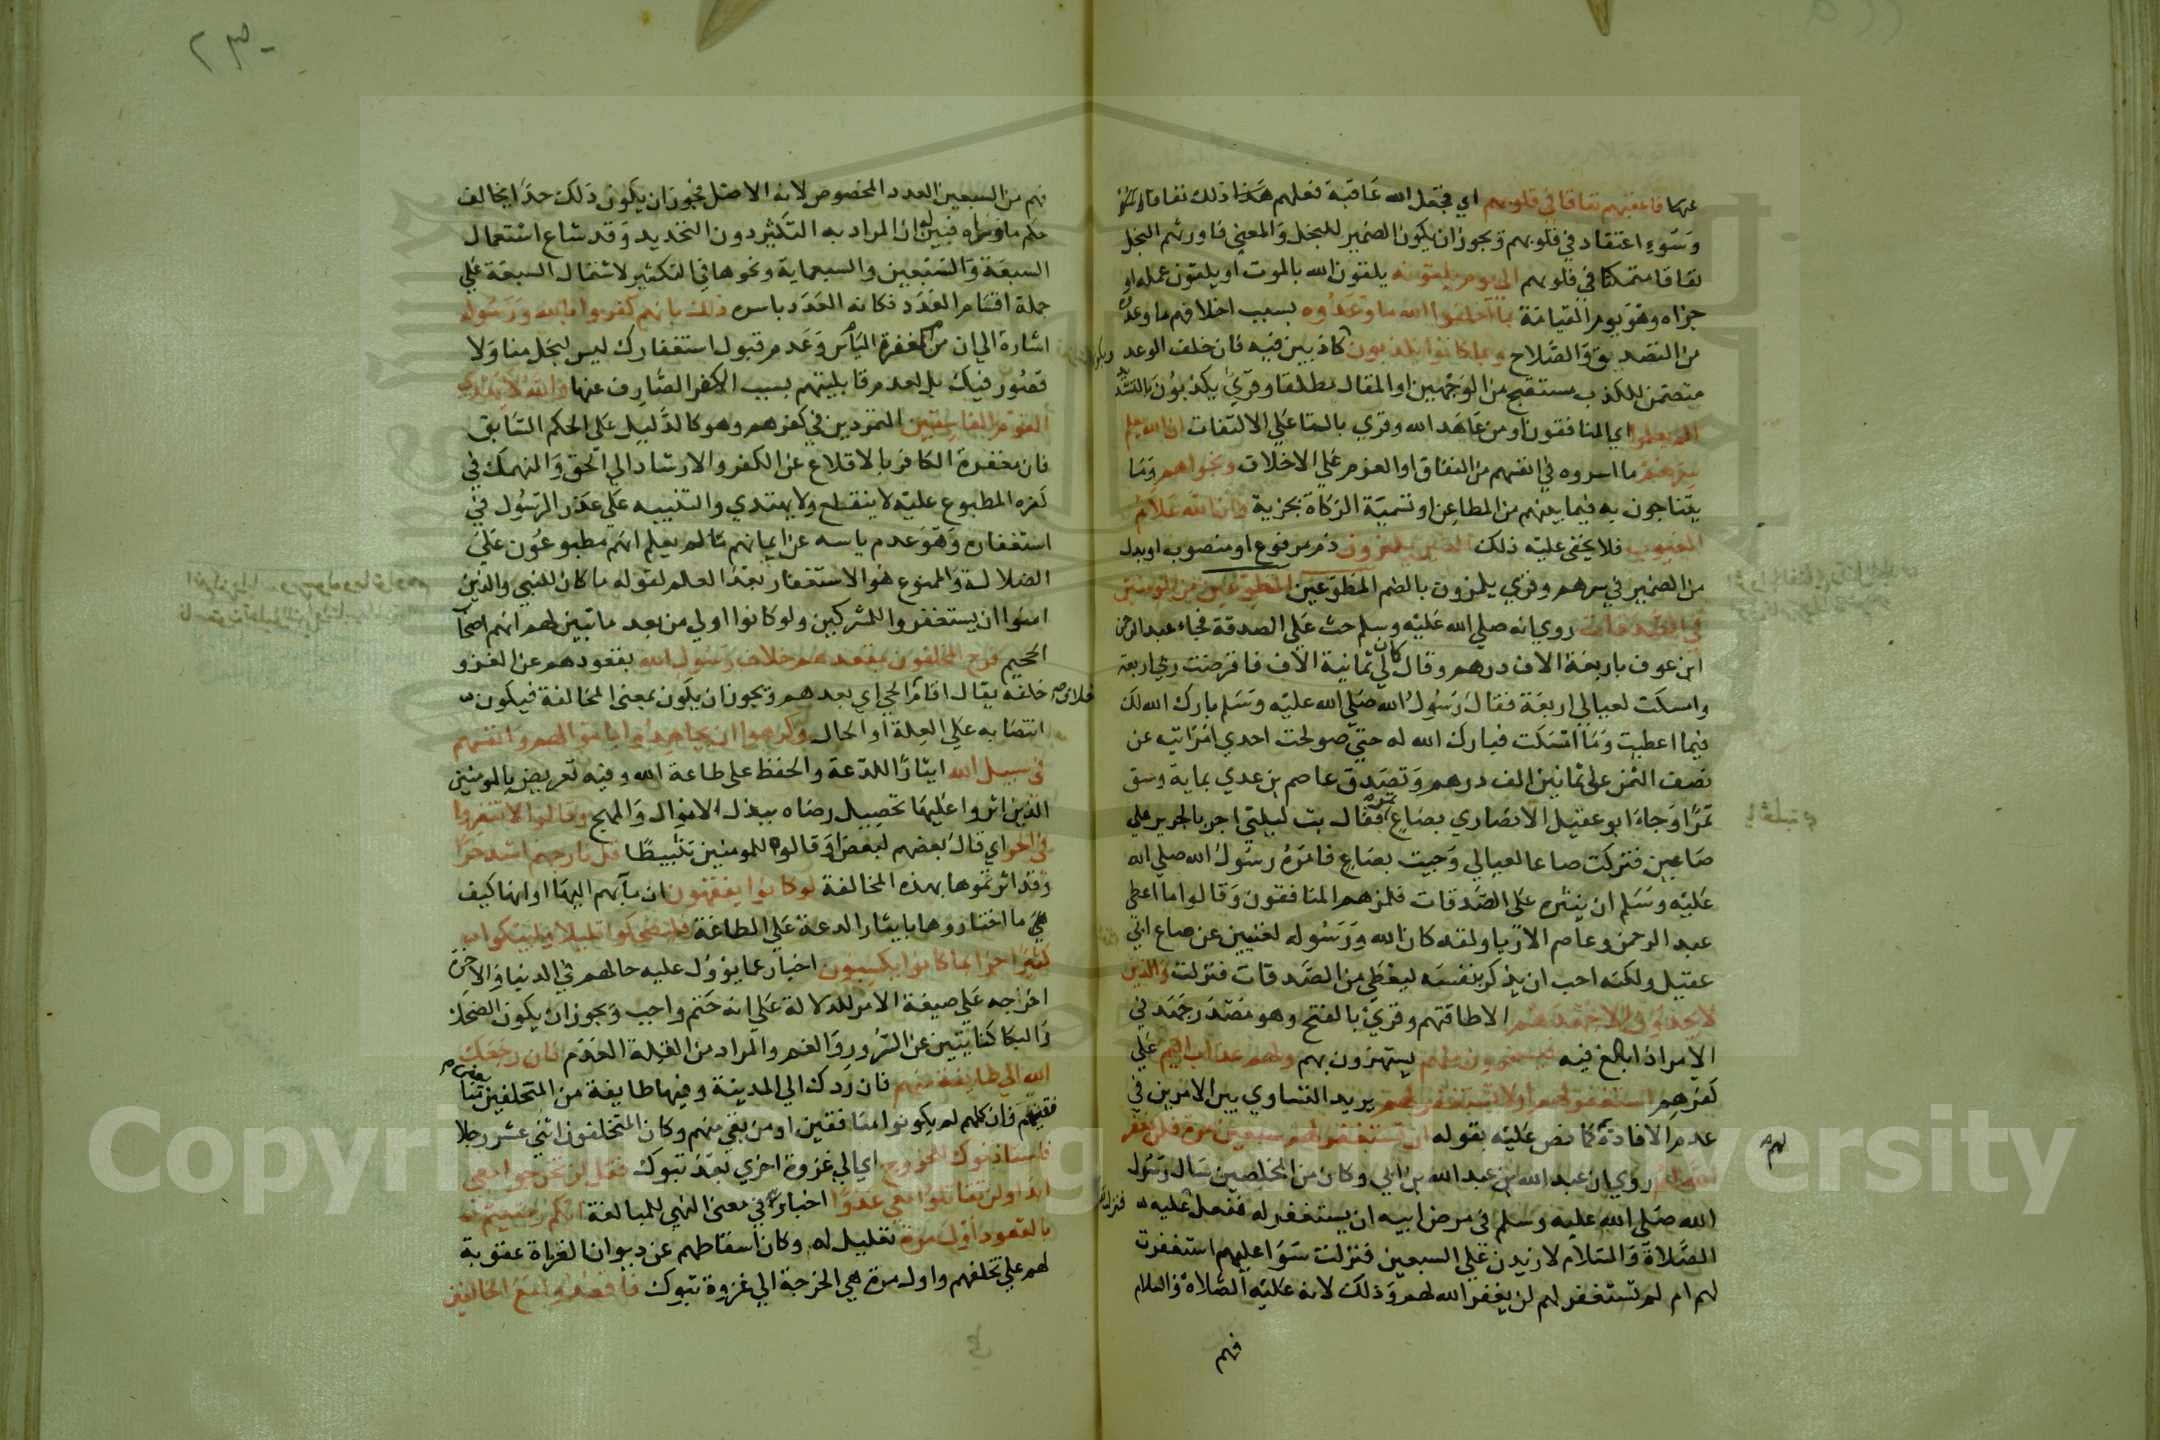 عنها فاعقبهم نفاقا في قلوبهم اي فجعل الله عاقبة فعلهم هذا ذلك نفاقا
وسوء اعتقاد في قلوبهم ويجوز ان يكون الضمير للبخل والمعني فاورثهم البخل
نفاقا متمكنا في قلوبهم الي يوم يلقونه يلقون الله بالموت او يلقون عمله او
جزاه وهو يوم القيامة بما اخلفوا الله ما وعدوه بسبب اخلافهم ما وعدوه
من التصديق والصلاح وبما كانوا يكذبون كاذبين فيه فان خلف الوعد
متضمن للكذب مستقبح من الوجهين او المقال مطلقا وقري يكذبون بالتشديد
الم يعلموا اي المنافقون او من عاهد الله وقري بالتا علي الالتفات ان الله يعلم
سرهم ما اسروه في انفسهم من النفاق او العزم علي الاخلاف ونجواهم وما
يتناجون به فيما بينهم من المطاعن او تسمية الزكاة بجزية وان الله علام
الغيوب فلا يخفي عليه ذلك الذين يلمزون ذم مرفوع او منصوب او بدل
من الضمير في سرهم وقري يلمزون بالضم المطوعين المطوعين من المومنين
في الصدقات روي انه صلي الله عليه وسلم حث علي الصدقة فجاء عبد الرحمن
ابن عوف باربعة الاف درهم وقال كان لي ثمانية الاف فاقرضت ربي اربعة
وامسكت لعيالي اربعة فقال رسول الله صلي الله عليه وسلم بارك الله لك
فيما اعطيت وما امسكت فبارك الله له حتي صولحت احدي امراتيه عن
نصف الثمن علي ثمانين الف درهم وتصدق عاصم بن عدي بماية وسق
تمرا وجاء ابو عقيل الانصاري بصاع تمر فقال بت ليلتي اجر بالجرير علي
صاعين فتركت صاعا لعيالي وجيت بصاع فامره رسول الله صلي الله
عليه وسلم ان ينثره علي الصدقات فلمزهم المنافقون وقالوا ما اعطي
عبد الرحمن وعاصم الا ريا ولقد كان الله ورسوله لغنيين عن صاع ابي
عقيل ولكنه احب ان يذكر بنفسه ليعطي من الصدقات فنزلت والذين
لا يجدون الا جهدهم الا طاقتهم وقري بالفتح وهو مصدر جهد في
الامر اذا بالغ فيه فيسخرون منهم يستهزون بهم ولهم عذاب اليم علي
كفرهم استغفر لهم او لا تستغفر لهم يريد التساوي بين الامرين في
عدم الافادة لهم كما نص عليه بقوله ان تستغفر لهم سبعين مرة فلن يغفر
الله لهم روي ان عبد الله بن عبد الله بن ابي وكان من المخلصين سال رسول
الله صلي الله عليه وسلم في مرض ابيه ان يستغفر له ففعل عليه
الصلاة والسلام لازيدن علي السبعين فنزلت سوا عليهم استغفرت
لهم ام لم تستغفر لهم لن يغفر الله لهم وذلك لانه عليه الصلاة والسلام
فهم
٢٣٠
فهم من السبعين العدد المخصوص لانه الاصل فجوز ان يكون ذلك حدا يخالف
حكم ما وراه فبين له ان المراد به التكثير دون التحديد وقد شاع استعمال
السبعة والسبعين والسبعماية ونحوها في التكثير لاشتمال السبعة علي
جملة اقسام العدد فكانه العدد باسره ذلك بانهم كفروا بالله ورسوله
اشارة الي ان من المغفرة الياس وعدم قبول استغفارك ليس لبخل منا ولا
قصور فيك بل لعدم قابليتهم بسبب الكفر الصارف عنها والله لا يهدي
القوم الفاسقين المتمردين في كفرهم وهو كالدليل علي الحكم السابق
فان مغفرة الكافر بالاقلاع عن الكفر والارشاد الي الحق والمنهمك في
كفره المطبوع عليه لا ينقطع ولا يهتدي والتنبيه علي عذر الرسول في
استغفاره وهو عدم ياسه عن ايمانهم ما لم يعلم انهم مطبوعون علي
الضلالة والممنوع هو الاستغفار بعد العلم لقوله ما كان للنبي والذين
امنوا ان يستغفروا للمشركين ولو كانوا اولي من بعد ما تبين لهم انهم اصحاب
الجحيم فرح المخلفون بمقعدهم خلاف رسول الله بقعودهم عن الغزو
خلفه يقال اقام خلاف الحي اي بعدهم ويجوز ان يكون بمعني المخالفة فيكون
انتصابه علي العلة او الحال وكرهوا ان يجاهدوا باموالهم وانفسهم
في سبيل الله ايثارا للدعة والحفظ علي طاعة الله وفيه تعريض بالمومنين
الذين اثروا عليها تحصيل رضاه ببذل الاموال والمهج وقالوا لا تنفروا
في الحر اي قال بعضهم لبعض او قالوه للمومنين تثبيطا قل نار جهنم اشد حرا
وقد اثرتموها بهذه المخالفة لو كانوا يفقهون ان مآبهم اليها او انها كيف
هي ما اختاروها بايثار الدعة علي الطاعة فليضحكوا قليلا وليبكوا
كثيرا جزا بما كانوا يكسبون اخبار عما يؤول عليه حالهم في الدنيا والاخرة
اخرجه علي صيغة الامر للدلالة علي انه حتم واجب ويجوز ان يكون الضحك
والبكا كنايتين عن السرور والغم والمراد من القلة العدم فان رجعك
الله الي طايفة منهم فان ردك الي المدينة وفيها طايفة من المتخلفين يعني
فقيهم فان كلهم لم يكونوا منافقين او من بقي منهم وكان المتخلفون اثني عشر رجلا
فاستاذنوك للخروج اي الي غزوة اخري بعد تبوك فقل لن تخرجوا معي
ابدا ولن تقاتلوا معي عدوا اخبار في معني النهي للمبالغة انكم رضيتم
بالقعود اول مرة تعليل له وكان اسقاطهم عن ديوان الغزاة عقوبة
لهم علي تخلفهم واول مرة هي الخرجة الي غزوة تبوك فاقعدوا مع الخالفين
Copyright © King Saud University